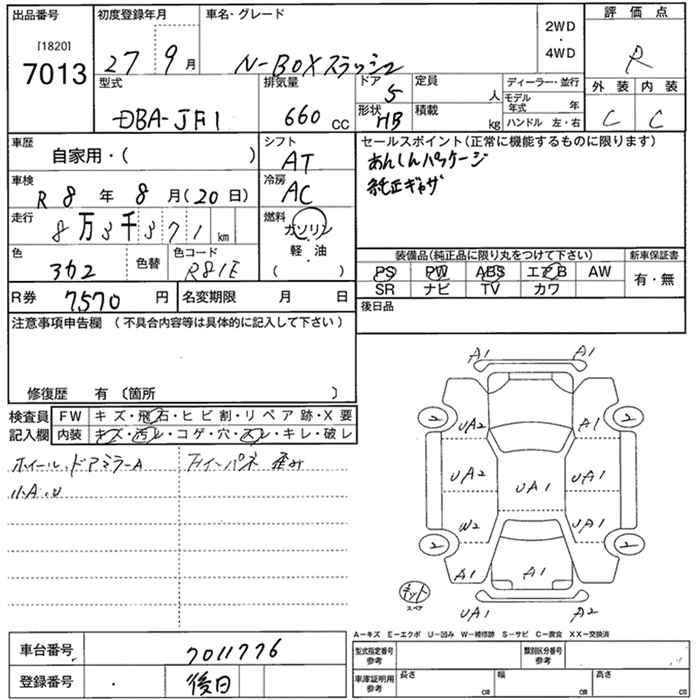 出品番号 初度登録年月 車名・グレード 評価点
[1820]
7013
27 9月
N-BOXスラッシュ
2WD
・
4WD
R
型式 排気量 ドア 定員 ディーラー・並行 外装 内装
DBA-JF1 660 cc 5 人 モデル年式 年 C C
形状 積載
HB kg ハンドル 左・右
車歴 シフト セールスポイント(正常に機能するものに限ります)
自家用・( ) AT あんしんパッケージ
車検 冷房 純正ギャザ
R8年8月(20日) AC
走行 燃料
8万3千371km ガソリン
軽・油
・
( )
色 色替 色コード 装備品(純正品に限り丸をつけて下さい) 新車保証書
R81E PS PW ABS エアB AW 有・無
SR ナビ TV カワ
R券 7570円 名変期限 月 日 後日品
注意事項申告欄 (不具合内容等は具体的に記入して下さい)
修復歴 有 (箇所 )
検査員 FW キズ・飛石・ヒビ割・リペア跡・X要
記入欄 内装 キズ・汚レ・コゲ・穴・スレ・キレ・破レ
ホイール、ドアミラーA
小A、U
A1 A1
2 2
UA2 A1
UA2 UA1 UA1
W2 UA1
2 2
A1 A1
キット
スペア
UA1 A2
A-キズ E-エクボ U-凹み W-補修跡 S-サビ C-腐食 XX-交換済
車台番号 7011776 型式指定番号 参考 類別区分番号 参考
登録番号 後日 車庫証明用 参考 長さ cm 幅 cm 高さ cm